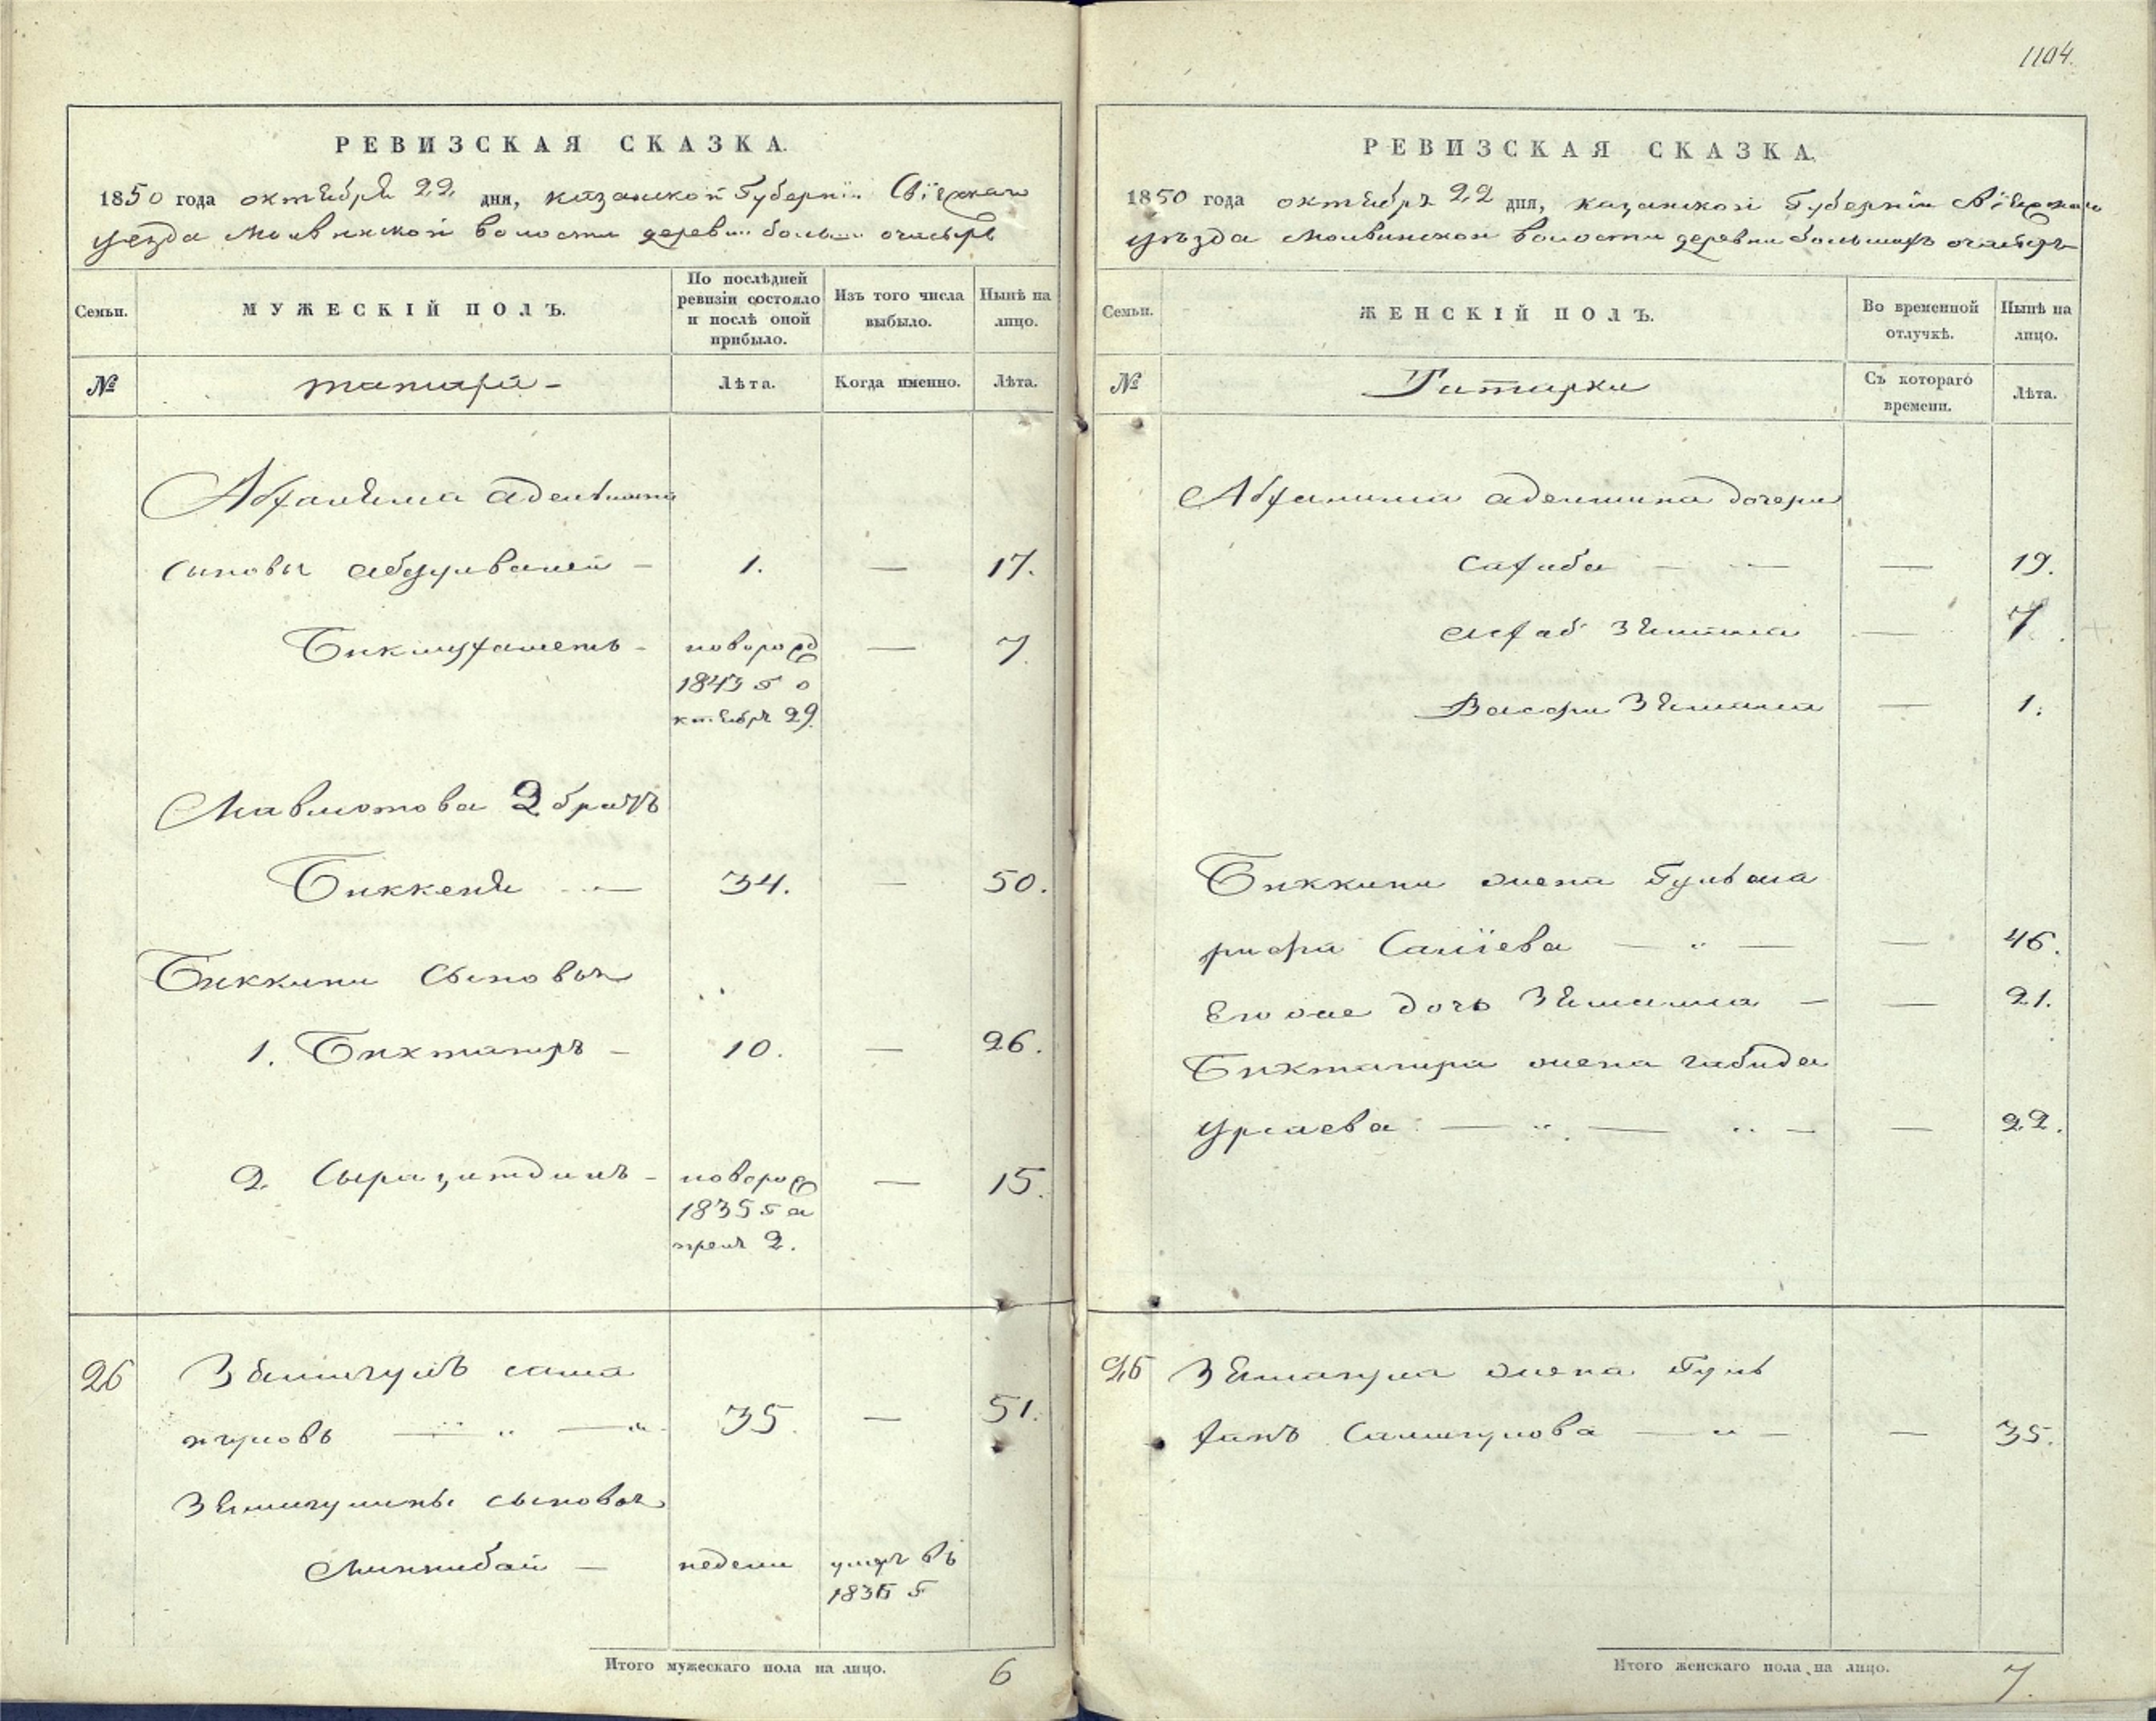 1104.
РЕВИЗСКАЯ СКАЗКА.
1850 года октября 22 дня, казанской Губернии Свіяжскаго
уезда Молвинской волости деревни больш.. очасырь
Семьи. МУЖЕСКІЙ ПОЛЪ. По послѣдней ревизіи состояло и послѣ оной прибыло. Изъ того числа выбыло. Нынѣ на лицо.
№ татары – Лѣта. Когда именно. Лѣта.
Абфалима адельшина
сыновья абдулвалей – 1. — 17.
Бикмухаметъ – новорожд — 7.
1843 г о
ктябрь 29.
Мавлютова 2 братъ
Биккеня — 34. — 50.
Биккини сыновья
1. Биктагиръ – 10. — 26.
2. Сыразитдинъ – новорож — 15.
1835 г а
прель 2.
26 Зямигулъ сама
нгуловъ — 35. — 51.
Зямигулины сыновья
Миннибай — недели умеръ въ
1836 г
Итого мужескаго пола на лицо. 6
РЕВИЗСКАЯ СКАЗКА.
1850 года октября 22 дня, казанской Губерніи Свіяжскаго
уѣзда Молвинской волости деревни большихъ очасыръ
Семьи. ЖЕНСКІЙ ПОЛЪ. Во временной отлучкѣ. Нынѣ на лицо.
№ Татарки Съ котораго времени. Лѣта.
Абфалима аделшина дочери
Сахиба — — 19.
Зямиля — 7.
Зямиля — 1.
Биккини жена Гульма
рифа Саліева — " — — 46.
Его же дочь Зямила – — 21.
Биктагира жена габида
Урлаева — " — " — — 22.
26 Зямигула жена Гуль
ханъ Салигулова — " — — 35.
Итого женскаго пола на лицо. 7.